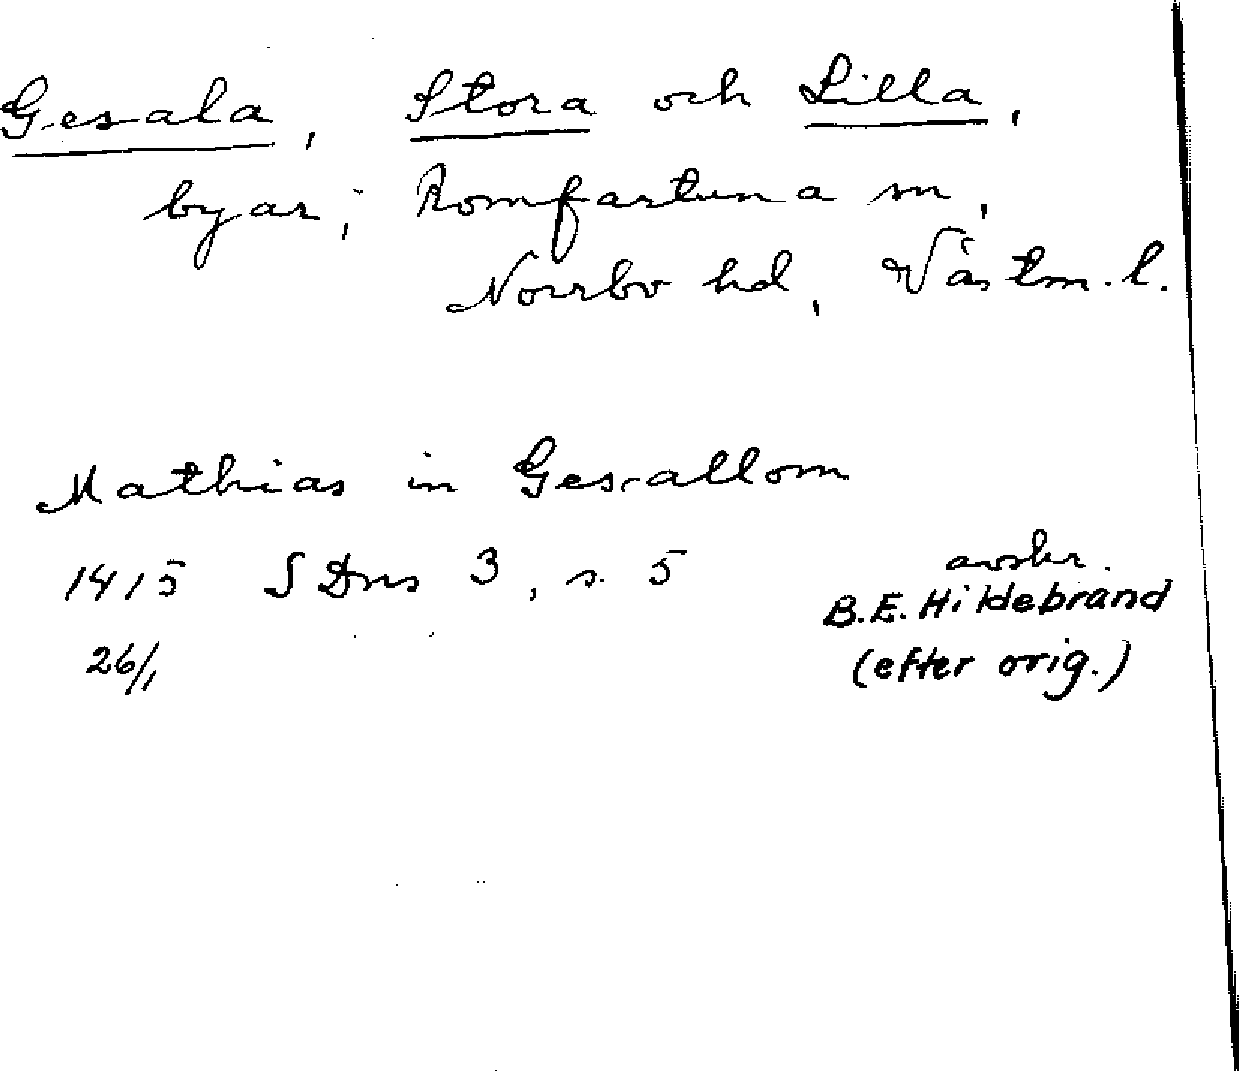 Gesala, Stora och Lilla,
byar, Romfartuna sn,
Norrbo hd, Västm. l.
Mathias in Gesallom
1415 SDns 3, s. 5 avskr.
26/1 B.E. Hildebrand
(efter orig.)